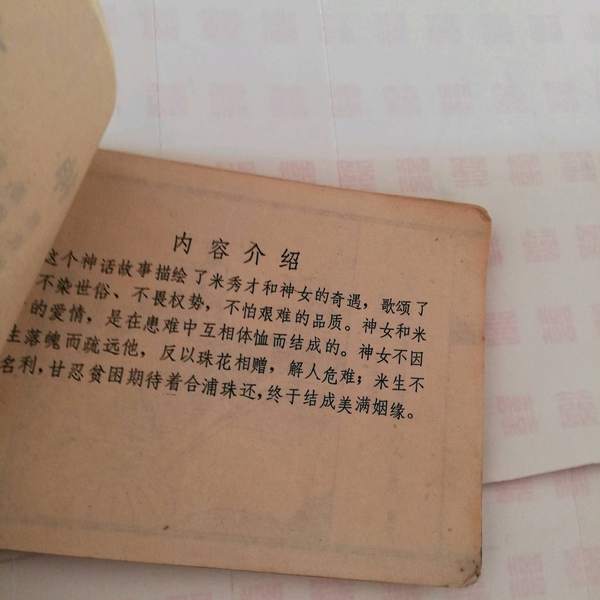 内容介绍
这个神话故事描绘了米秀才和神女的奇遇，歌颂了
不染世俗、不畏权势，不怕艰难的品质。神女和米
的爱情，是在患难中互相体恤而结成的。神女不因
生落魄而疏远他，反以珠花相赠，解人危难；米生不
名利，甘忍贫困期待着合浦珠还，终于结成美满姻缘。